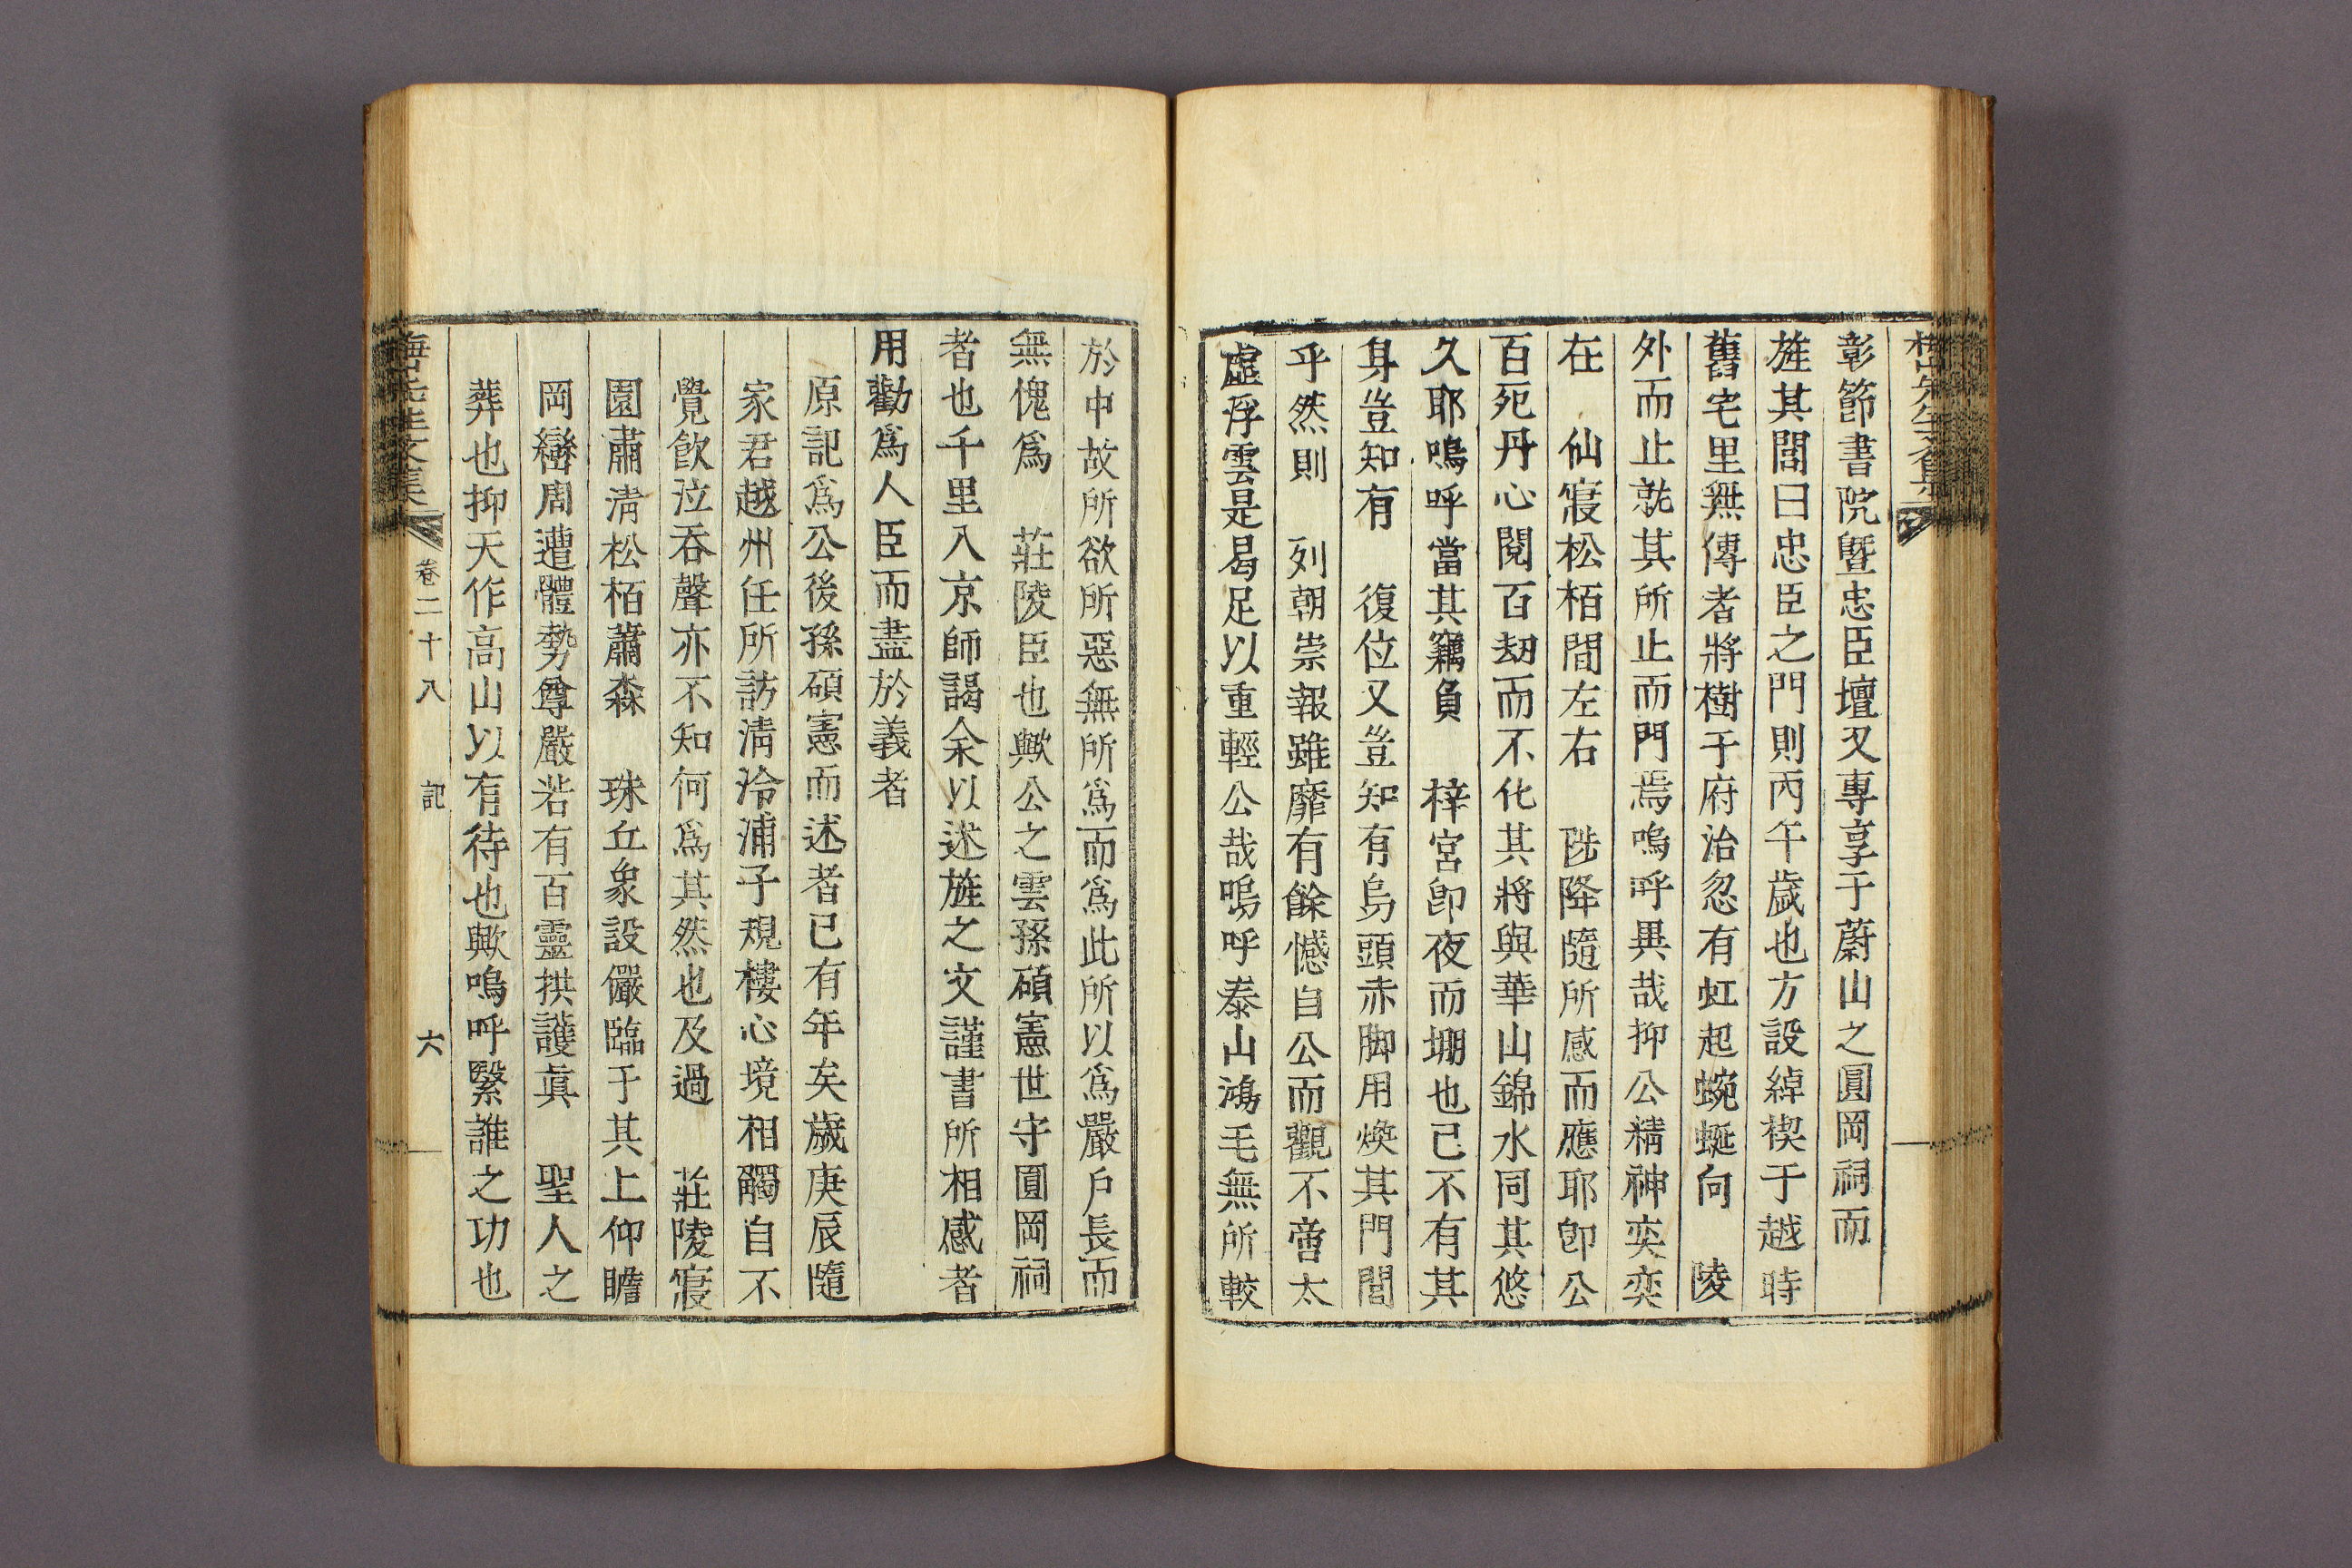 彰節書院曁忠臣壇又專享于蔚山之圓岡祠而
旌其閭曰忠臣之門則丙午歲也方設綽楔于越時
舊宅里無傳者將樹于府治忽有虹起蜿蜒向 陵
外而止就其所止而門焉嗚呼異哉抑公精神奕奕
在 仙寢松栢間左右 陟降隨所感而應耶卽公
百死丹心閱百刼而不化其將與華山錦水同其悠
久耶嗚呼當其竊負 梓宮卽夜而堋也已不有其
身豈知有 復位又豈知有烏頭赤脚用煥其門閭
乎然則 列朝崇報雖靡有餘憾自公而觀不啻太
虛浮雲是曷足以重輕公哉嗚呼泰山鴻毛無所較
於中故所欲所惡無所爲而爲此所以爲嚴戶長而
無愧爲 莊陵臣也歟公之雲孫碩憲世守圓岡祠
者也千里入京師謁余以述旌之文謹書所相感者
用勸爲人臣而盡於義者
原記爲公後孫碩憲而述者已有年矣歲庚辰隨
家君越州任所訪淸泠浦子規樓心境相觸自不
覺飮泣呑聲亦不知何爲其然也及過 莊陵寢
園肅淸松栢蕭森 珠丘象設儼臨于其上仰瞻
岡巒周遭體勢尊嚴若有百靈拱護眞 聖人之
葬也抑天作高山以有待也歟嗚呼繄誰之功也
梅山先生文集
卷二十八 記 六